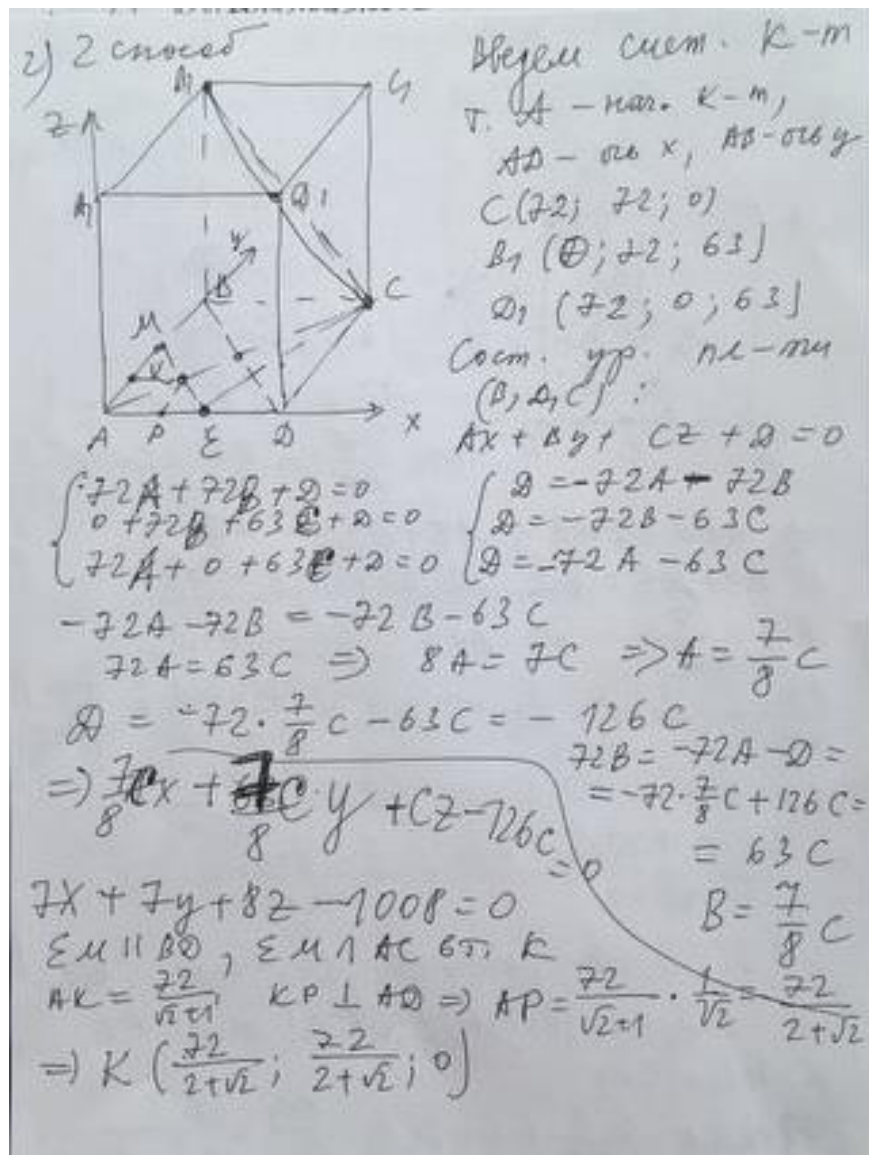 2) 2 способ
Введем сист. К-т
т. A – нач. К-т,
AD – ось x, AB – ось y
C(72; 72; 0)
B₁ (0; 72; 63)
D₁ (72; 0; 63)
Сост. ур. пл-ти
(B₁D₁C) :
Ax + By + Cz + D = 0
B₁
C₁
z
A₁
D₁
y
B
C
M
K
A
P
E
D
x
72A + 72B + D = 0
0 + 72B + 63C + D = 0
72A + 0 + 63C + D = 0
D = -72A - 72B
D = -72B - 63C
D = -72A - 63C
-72A - 72B = -72B - 63C
72A = 63C => 8A = 7C => A = 7/8 C
D = -72 · 7/8 C - 63C = - 126C
72B = -72A - D =
= -72 · 7/8 C + 126C =
= 63C
B = 7/8 C
=> 7/8 Cx + 7/8 C · y + Cz - 126C = 0
7x + 7y + 8z - 1008 = 0
EM || BD, EM ∩ AC в т. K
AK = 72/(√2+1), KP ⊥ AD => AP = 72/(√2+1) · 1/√2 = 72/(2+√2)
=> K (72/(2+√2); 72/(2+√2); 0)